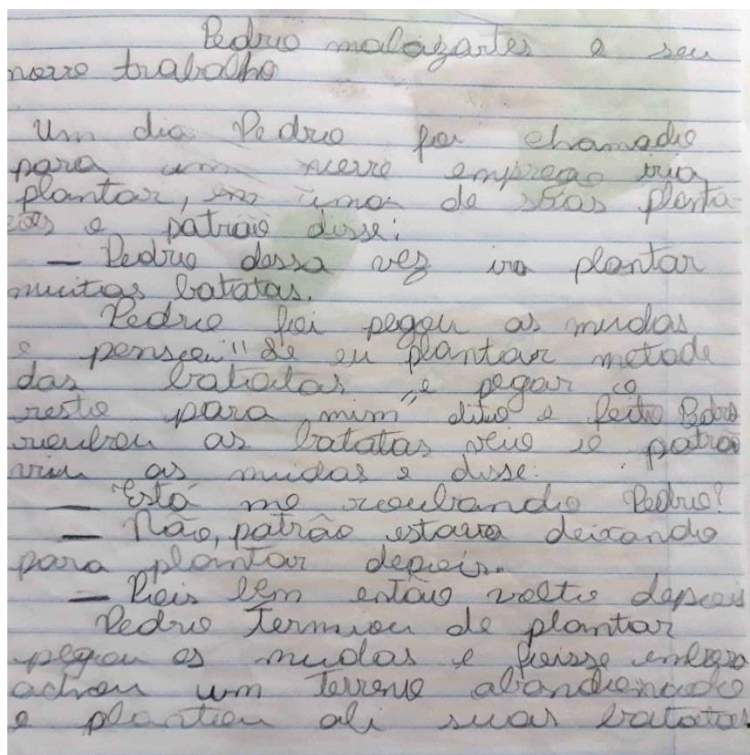 Pedro malazartes e seu
novo trabalho
Um dia Pedro foi chamado
para um novo emprego iria
plantar, em uma de suas planta
ções o patrão disse:
— Pedro dessa vez ira plantar
muitas batatas.
Pedro foi pegou as mudas
e pensou "Se eu plantar metade
das batatas e pegar o
resto para mim" dito e feito Pedro
roubou as batatas veio o patrão
viu as mudas e disse:
— Está me roubando Pedro?
— Não, patrão estava deixando
para plantar depois.
— Pois bem então volto depois
Pedro Termiou de plantar
pegou as mudas e foisse embora
achou um Terreno abandonado
e plantou ali suas batatas.